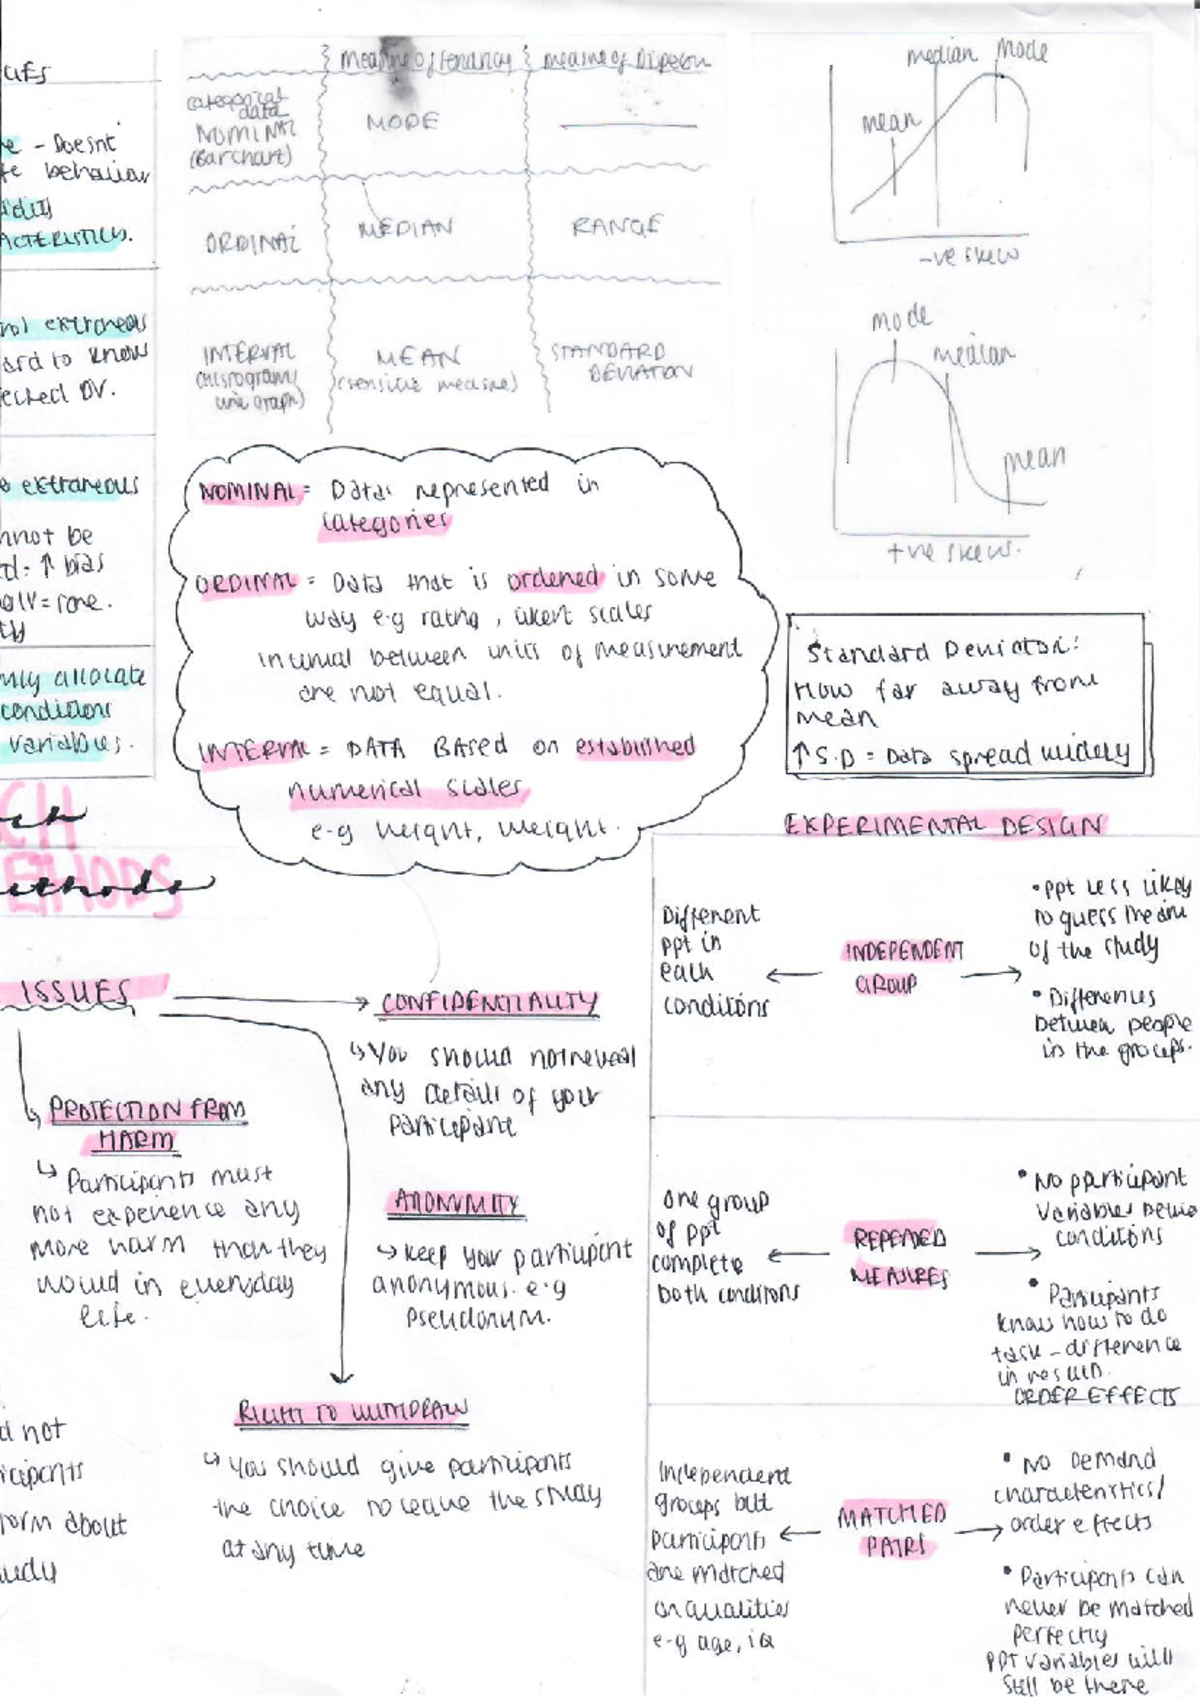 Measure of tendancy
measure of Dispersion
categorical
data
NOMINAL
(Barchart)
MODE
ORDINAL
MEDIAN
RANGE
INTERVAL
(histogram/
line graph)
MEAN
(sensitive measure)
STANDARD
DEVIATION
mean
median
Mode
-ve skew
mode
median
mean
+ve skew.
- Doesnt
behaviour
extraneous
to know
DV.
extraneous
be
↑ bias
allocate
conditions
variables.
NOMINAL = Data represented in
categories
ORDINAL = Data that is ordered in some
way e.g rating, likert scales
interval between units of measurement
are not equal.
INTERVAL = DATA BASED on established
numerical scales
e-g height, weight.
Standard Deviation:
How far away from
mean
↑ S.D = Data spread widely
EXPERIMENTAL DESIGN
Different
ppt in
each
conditions
INDEPENDENT
GROUP
• ppt less likely
to guess the aim
of the study
• Differences
between people
in the groups.
one group
of ppt
complete
both conditions
REPEATED
MEASURES
• No participant
variables between
conditions
• Participants
know how to do
task - difference
in results.
ORDER EFFECTS
Independent
groups but
participants
are matched
on qualities
e-g age, iQ
MATCHED
PAIRS
• No Demand
characteristics/
order effects
• Participants can
never be matched
perfectly
PPT variables will
still be there
ISSUES
CONFIDENTIALITY
↳ You should not reveal
any details of your
participant
PROTECTION FROM
HARM
↳ Participants must
not experience any
more harm than they
would in everyday
life.
ANONYMITY
↳ keep your participant
anonymous. e.g
pseudonym.
RIGHT TO WITHDRAW
↳ You should give participants
the choice to leave the study
at any time
not
about